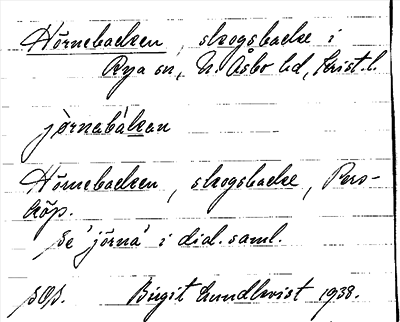 Hörnebacken, skogsbacke i
Rya sn, N. Åsbo hd, Krist. l.
jö̀rnebákən
Hörnebacken, skogsbacke, Pers-
köp.
se 'jörna' i did. saml.
sOs. Birgit Lundkvist 1938.